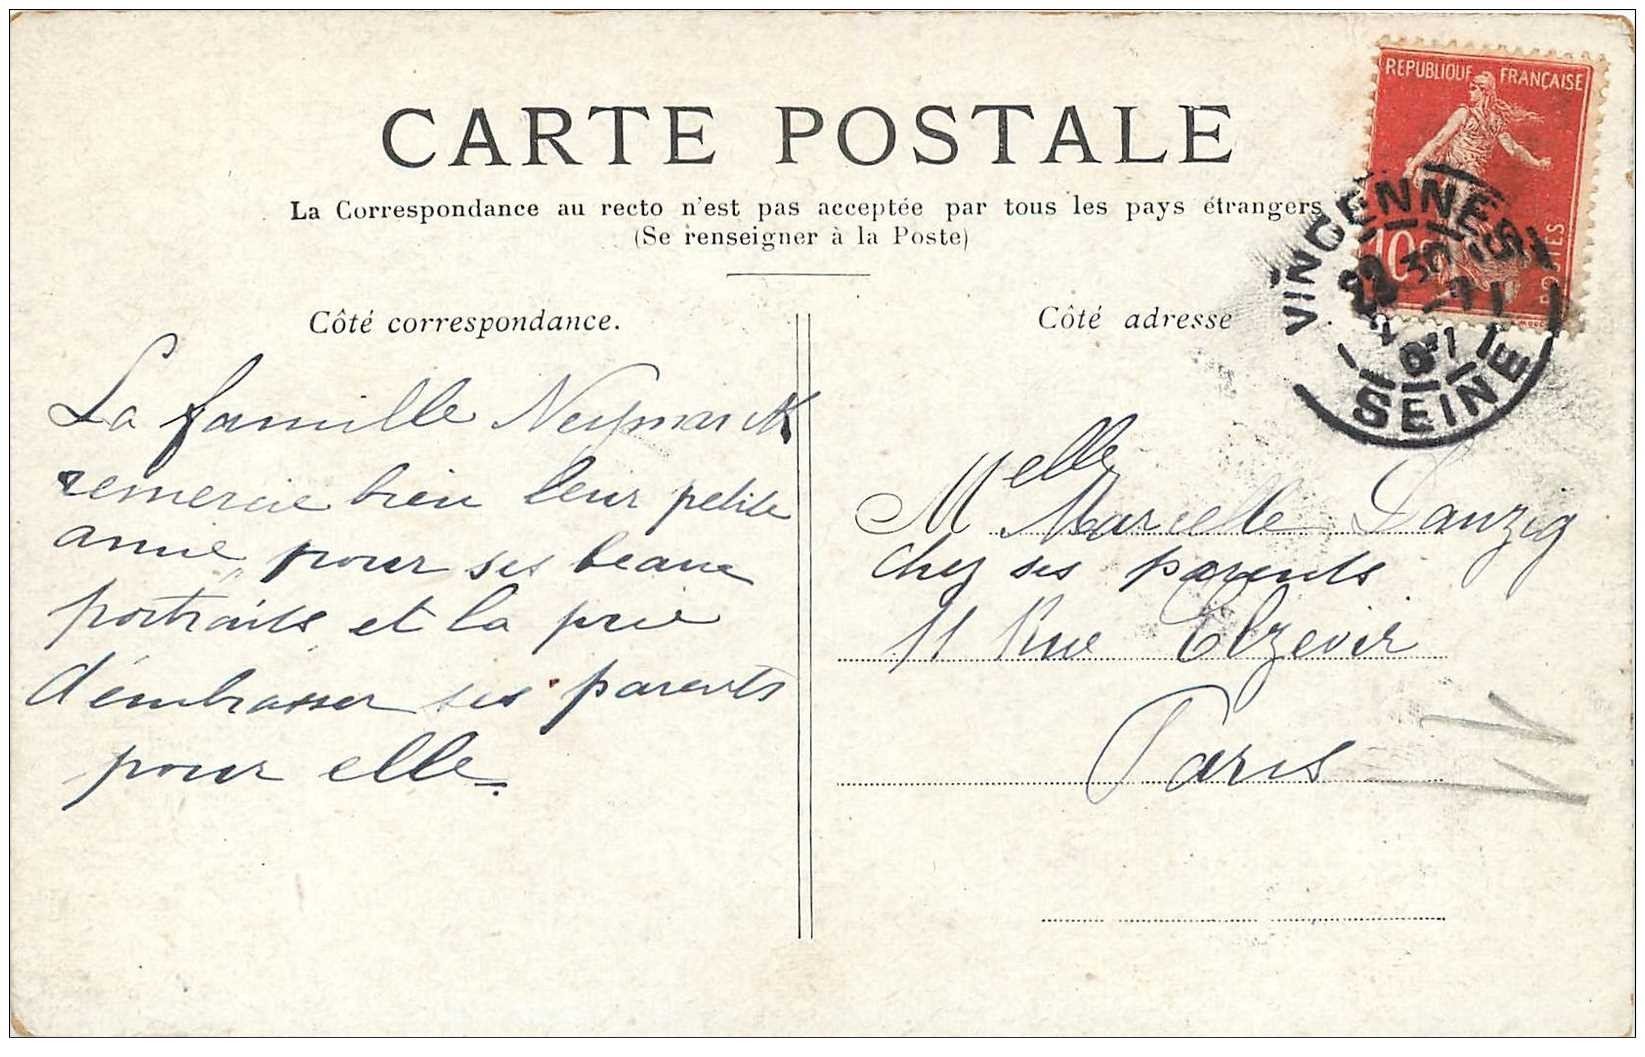 CARTE POSTALE
La Correspondance au recto n'est pas acceptée par tous les pays étrangers
(Se renseigner à la Poste)
Côté correspondance.
La famille Neymarck
remercie bien leur petite
amie pour ses beaux
portraits et la prie
d'embrasser ses parents
pour elle.
Côté adresse
REPUBLIQUE FRANÇAISE
10c
POSTES
VINCENNES
SEINE
Melle Marcelle Danzig
chez ses parents
11 Rue Elzevir
Paris